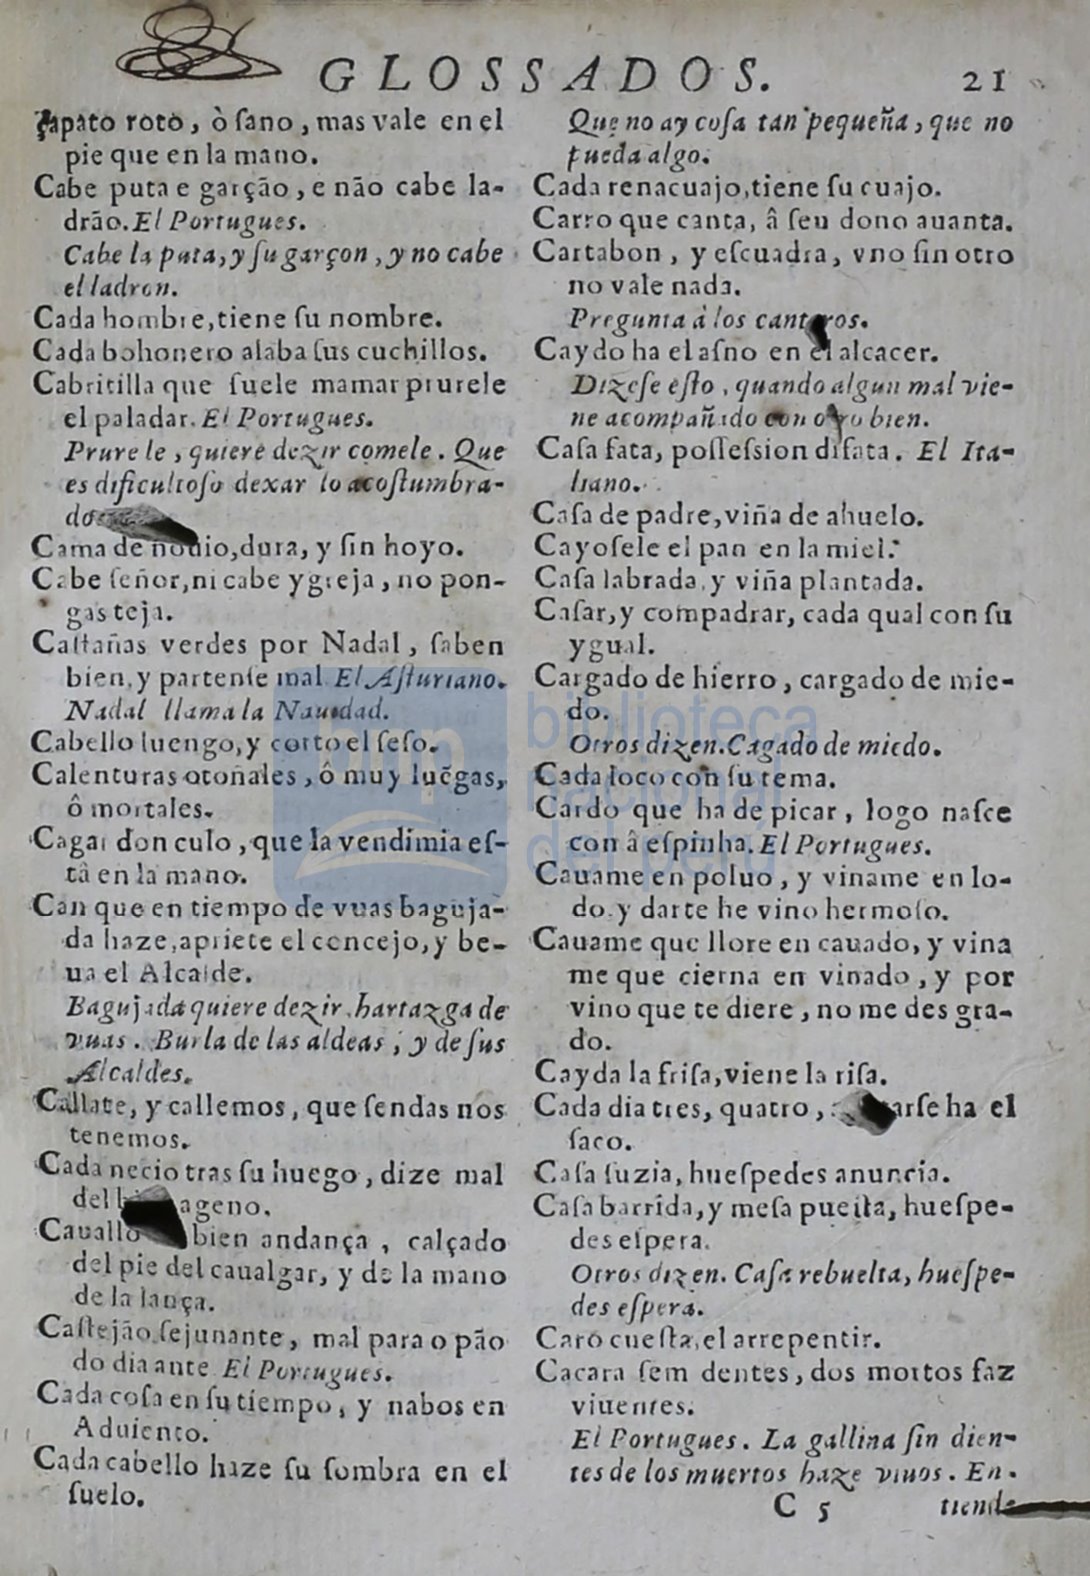 GLOSSADOS.
21
Çapato roto, ò ſano, mas vale en el
pie que en la mano.
Cabe puta e garção, e não cabe la-
drão. El Portugues.
Cabe la puta, y ſu garçon, y no cabe
el ladron.
Cada hombre, tiene ſu nombre.
Cada bohonero alaba ſus cuchillos.
Cabritilla que ſuele mamar prurele
el paladar. El Portugues.
Prure le, quiere dezir comele. Que
es dificultoſo dexar lo acoſtumbra-
do
Cama de nouio, dura, y ſin hoyo.
Cabe ſeñor, ni cabe ygreja, no pon-
gas teja.
Caſtañas verdes por Nadal, ſaben
bien, y partenſe mal. El Aſturiano.
Nadal llama la Nauidad.
Cabello luengo, y corto el ſeſo.
Calenturas otoñales, ô muy luẽgas,
ô mortales.
Cagar don culo, que la vendimia eſ-
tâ en la mano.
Can que en tiempo de vuas baguja-
da haze, apriete el concejo, y be-
ua el Alcalde.
Bagujada quiere dezir, hartazga de
vuas. Burla de las aldeas, y de ſus
Alcaldes.
Callate, y callemos, que ſendas nos
tenemos.
Cada necio tras ſu huego, dize mal
del ageno.
Cauallo bien andança, calçado
del pie del caualgar, y de la mano
de la lança.
Caſtejão ſejunante, mal para o pão
do dia ante. El Portugues.
Cada coſa en ſu tiempo, y nabos en
Aduiento.
Cada cabello haze ſu ſombra en el
ſuelo.
Que no ay coſa tan pequeña, que no
pueda algo.
Cada renacuajo, tiene ſu cuajo.
Carro que canta, â ſeu dono auanta.
Cartabon, y eſcuadra, vno ſin otro
no vale nada.
Pregunta à los canteros.
Caydo ha el aſno en el alcacer.
Dizeſe eſto, quando algun mal vie-
ne acompañado con otro bien.
Caſa fata, poſſeſsion disfata. El Ita-
liano.
Caſa de padre, viña de ahuelo.
Cayoſele el pan en la miel.
Caſa labrada, y viña plantada.
Caſar, y compadrar, cada qual con ſu
ygual.
Cargado de hierro, cargado de mie-
do.
Otros dizen. Cagado de miedo.
Cada loco con ſu tema.
Cardo que ha de picar, logo naſce
con â eſpinha. El Portugues.
Cauame en poluo, y viname en lo-
do, y darte he vino hermoſo.
Cauame que llore en cauado, y vina
me que cierna en vinado, y por
vino que te diere, no me des gra-
do.
Cayda la friſa, viene la riſa.
Cada dia tres, quatro, ha el
ſaco.
Caſa ſuzia, hueſpedes anuncia.
Caſa barrida, y meſa pueſta, hueſpe-
des eſpera.
Otros dizen. Caſa rebuelta, hueſpe-
des eſpera.
Caro cueſta, el arrepentir.
Cacara ſem dentes, dos mortos faz
viuentes.
El Portugues. La gallina ſin dien-
tes de los muertos haze viuos. En-
C 5
tiende
biblioteca
nacional
del perú